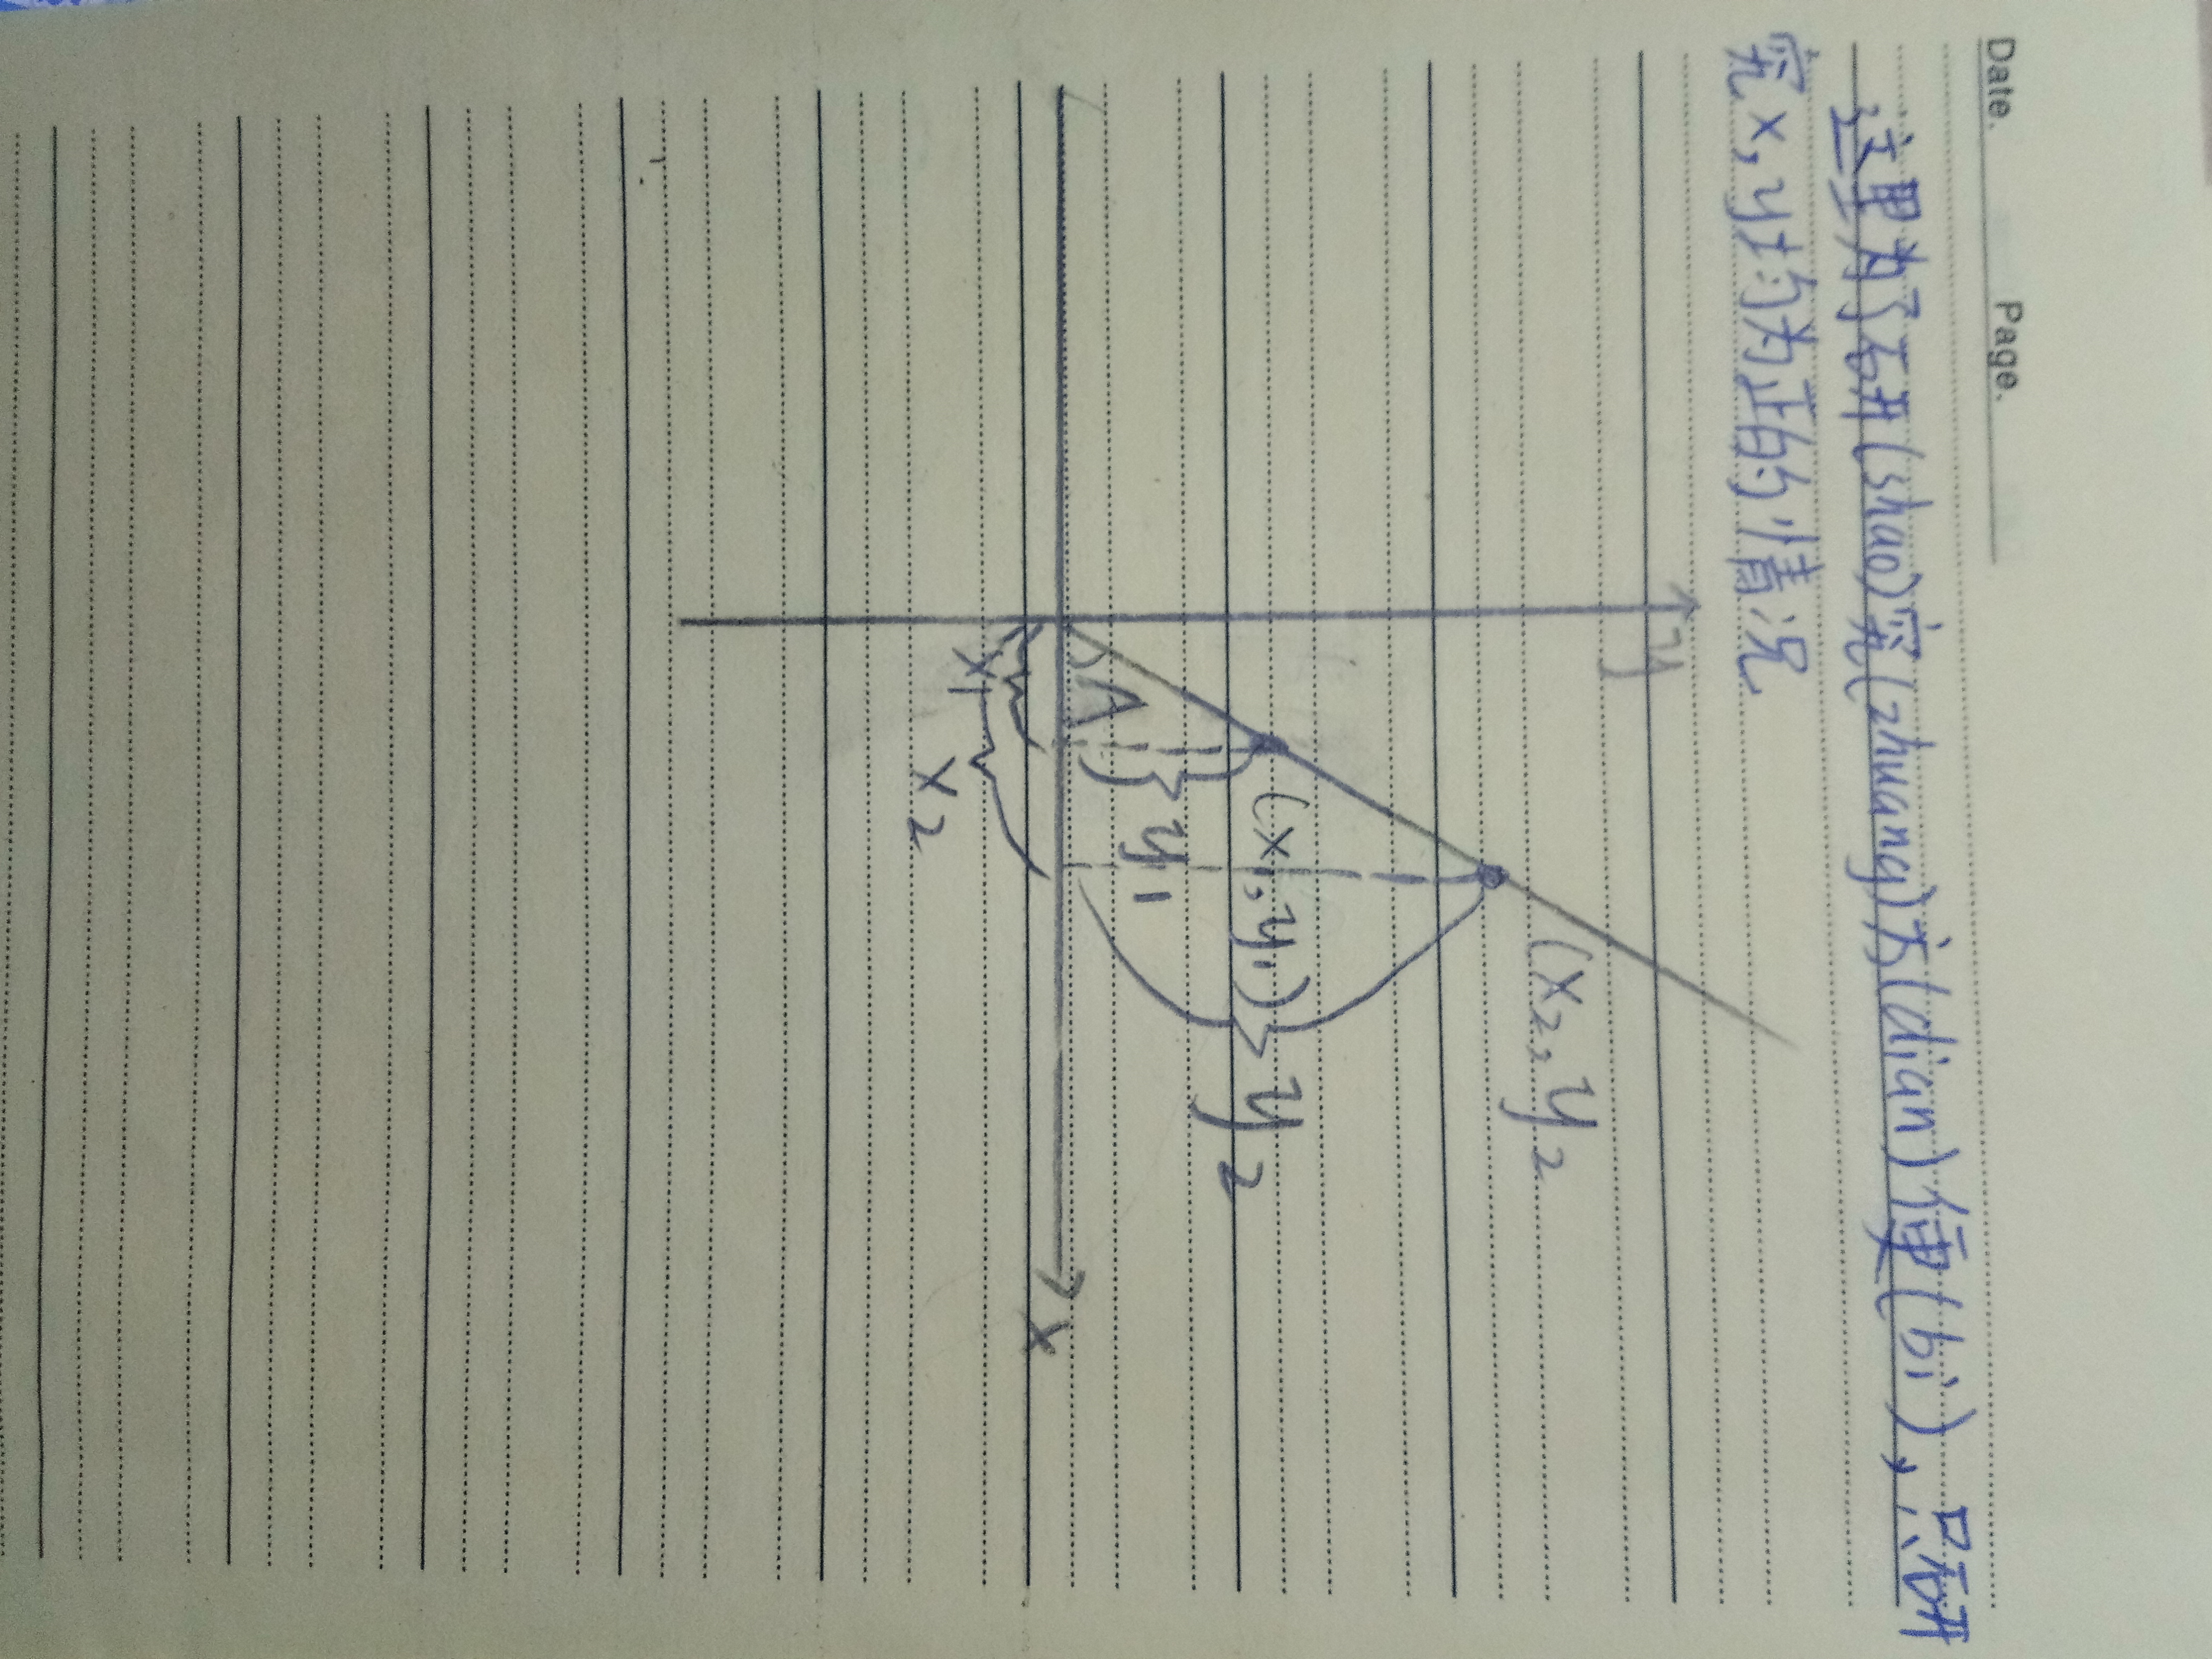 Date. Page.
这里为了研(shao)究(zhuang)方(dian)便(bi),只研
究x,y均为正的情况
y
(x₂,y₂
(x₁,y₁)
y₂
y₁
A
x
x₁
x₂